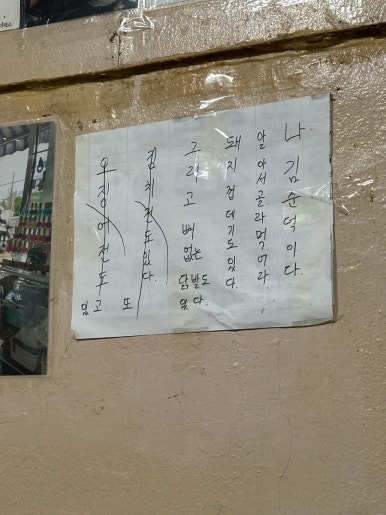 나 김준덕이다.
알아서골라먹어라.
돼지겁데기도있다.
그리고 뼈없는 닭발도 있다.
김치전도있다.
오징어전도
있고 또